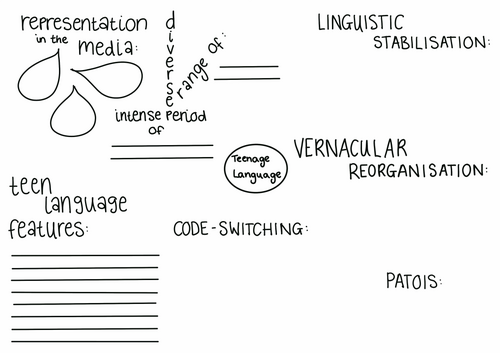 representation
in the
media:
diverse
range of:
intense period
of
LINGUISTIC
STABILISATION:
Teenage
Language
VERNACULAR
REORGANISATION:
teen
language
features:
CODE-SWITCHING:
PATOIS: